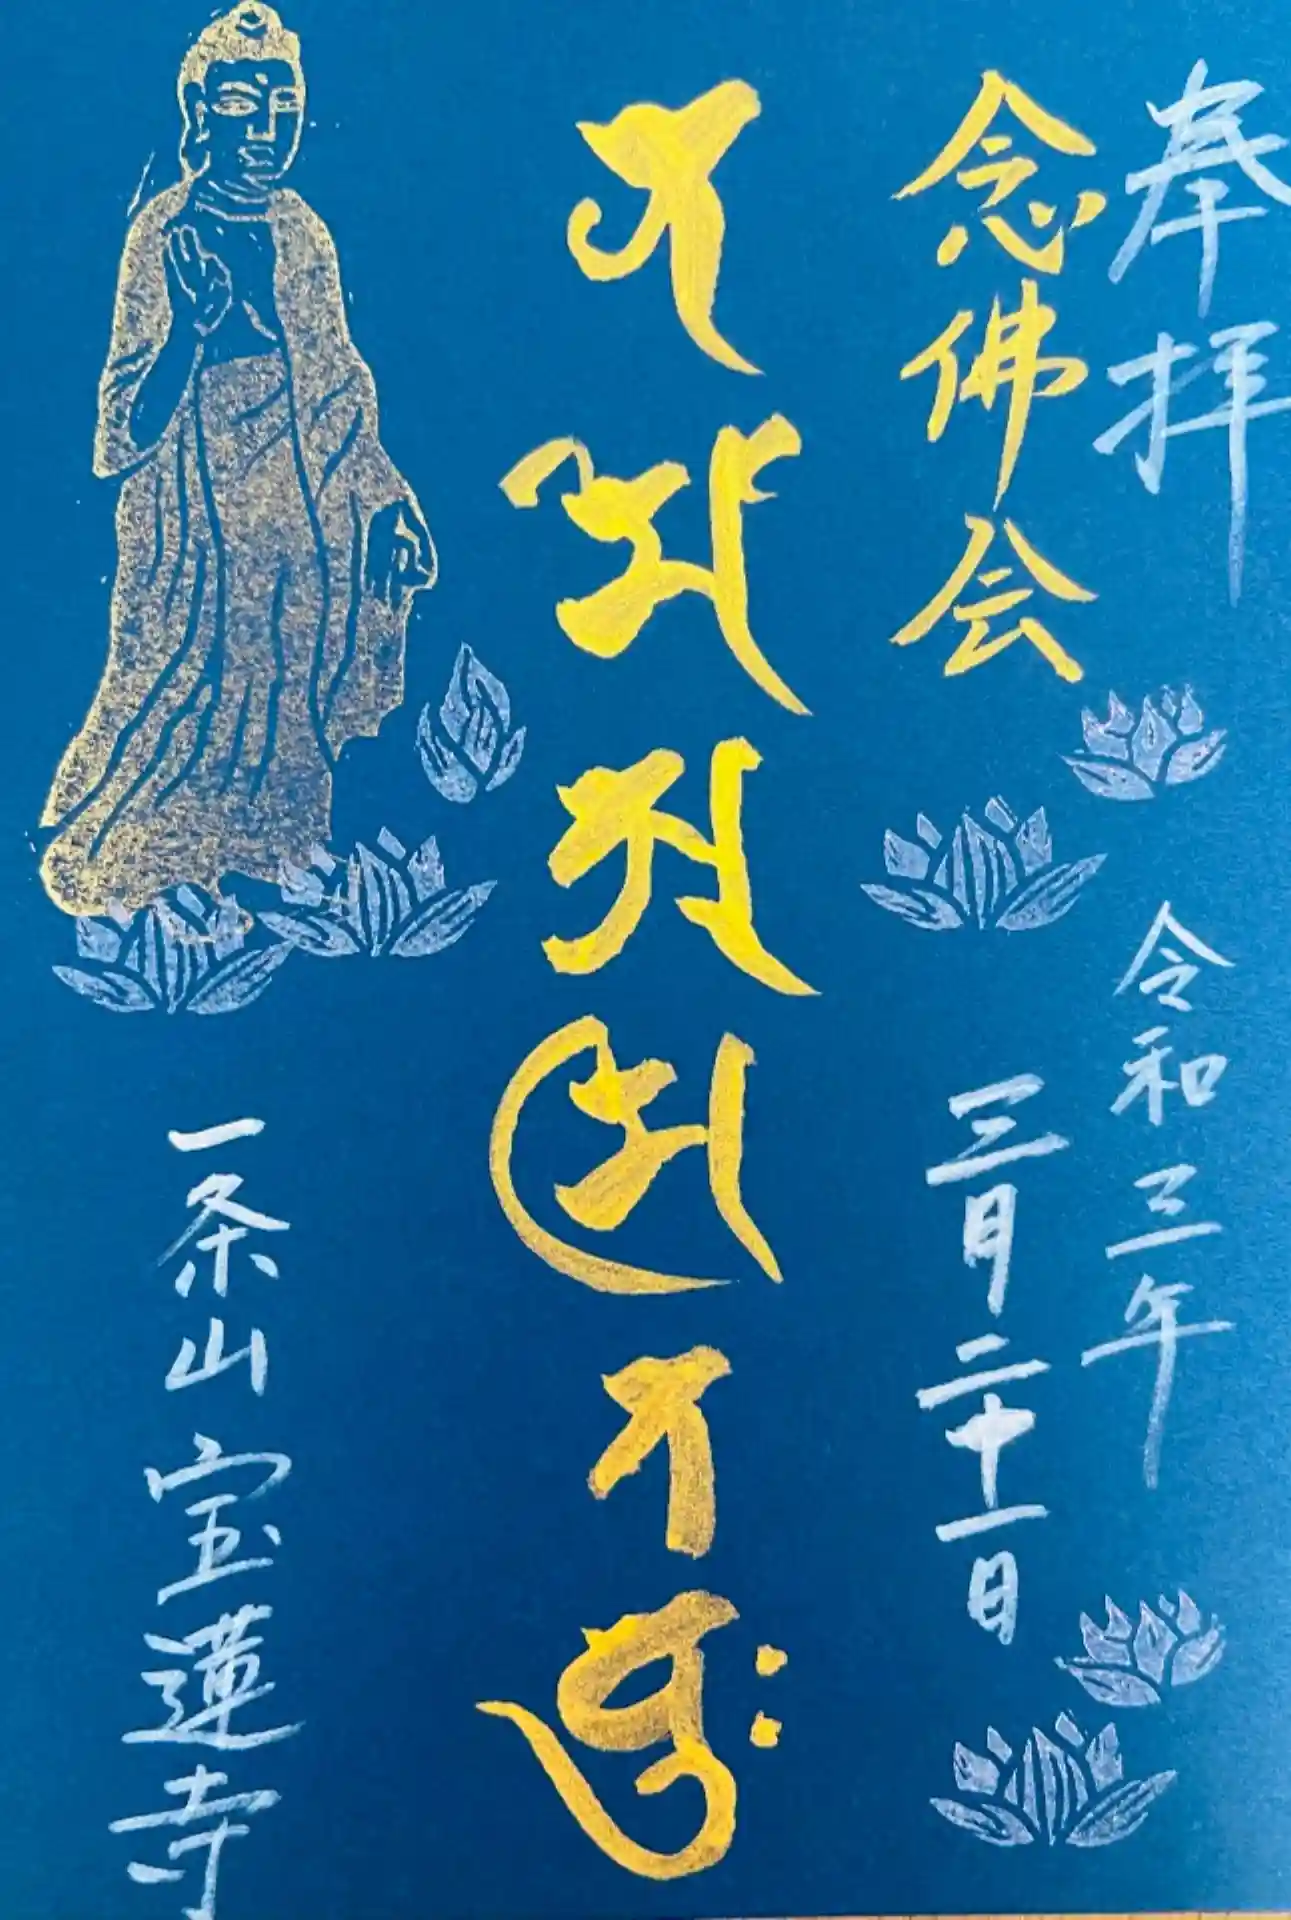 奉拝
念佛会
令和三年
三月二十一日
𑖡𑖦𑖺𑖀𑖦𑖰𑖝
一条山 宝蓮寺